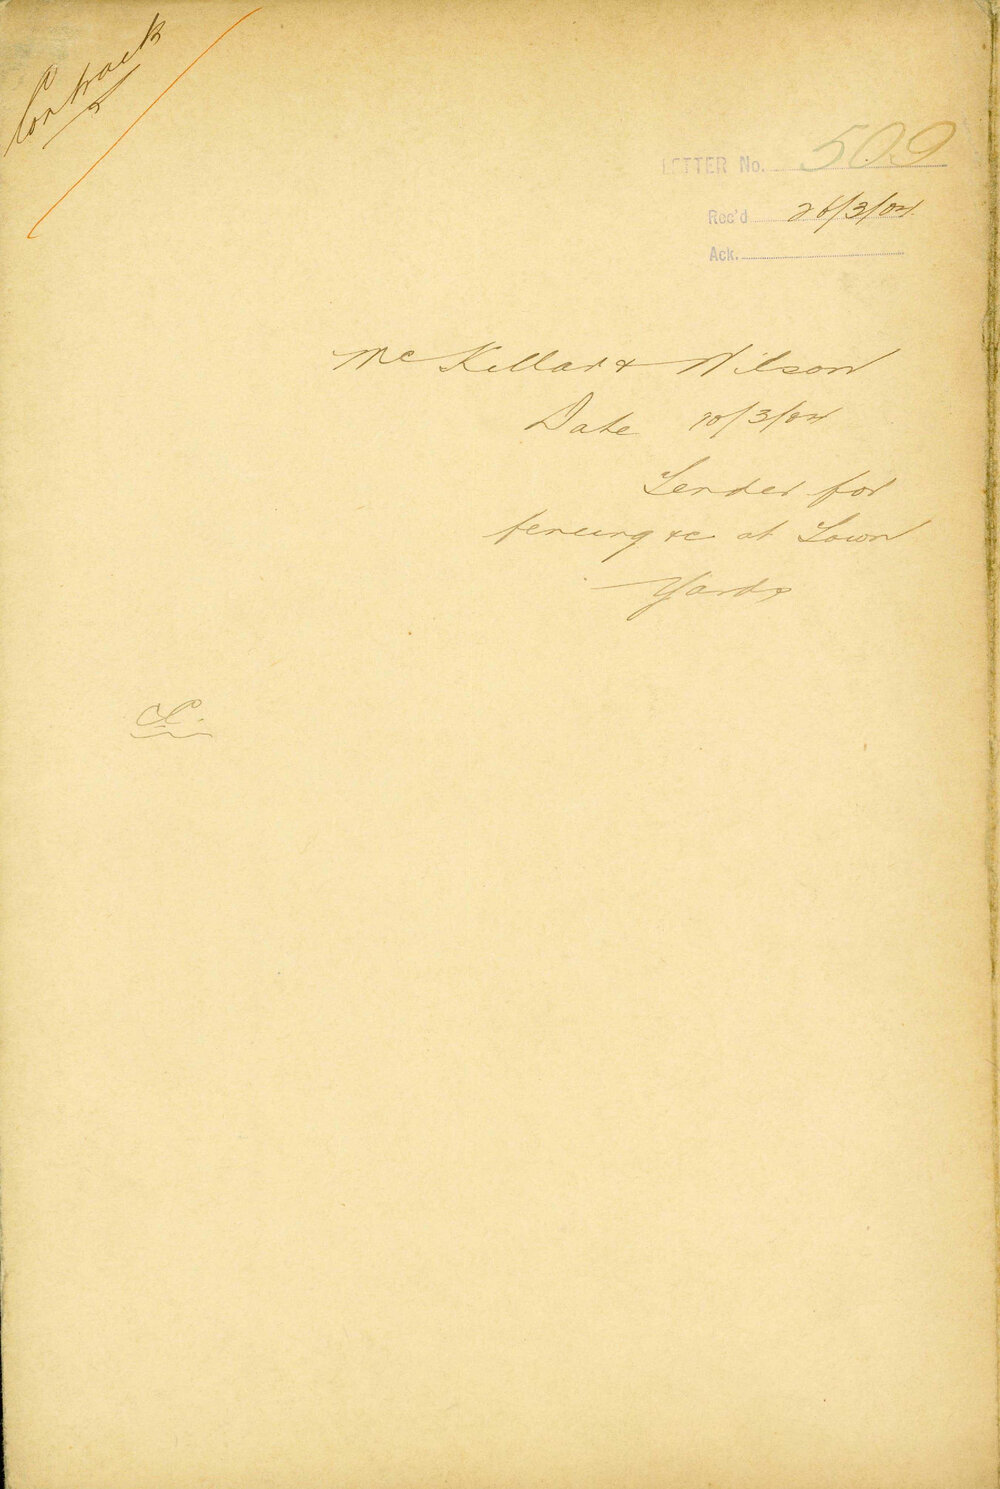 Contract
LETTER No. 509
Rec'd 26/3/04.
Ack.
McKellar & Wilson
Date 10/3/04
Tender for
fencing &c at Town
Yards